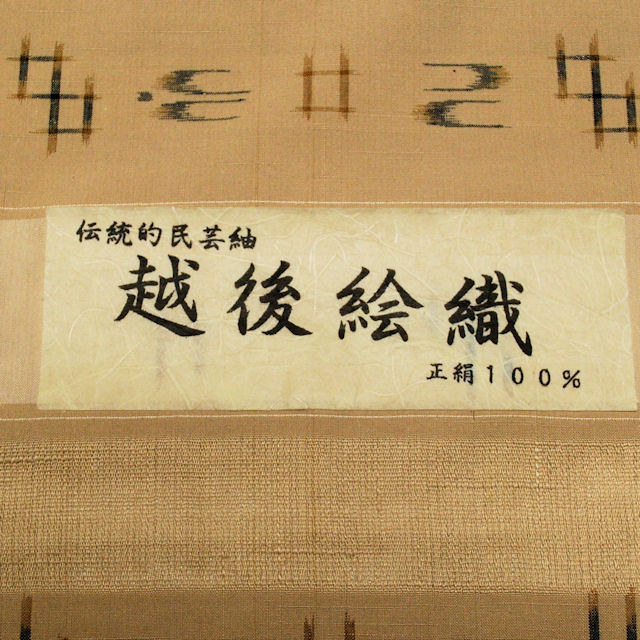 伝統的民芸紬
越後絵織
正絹100%